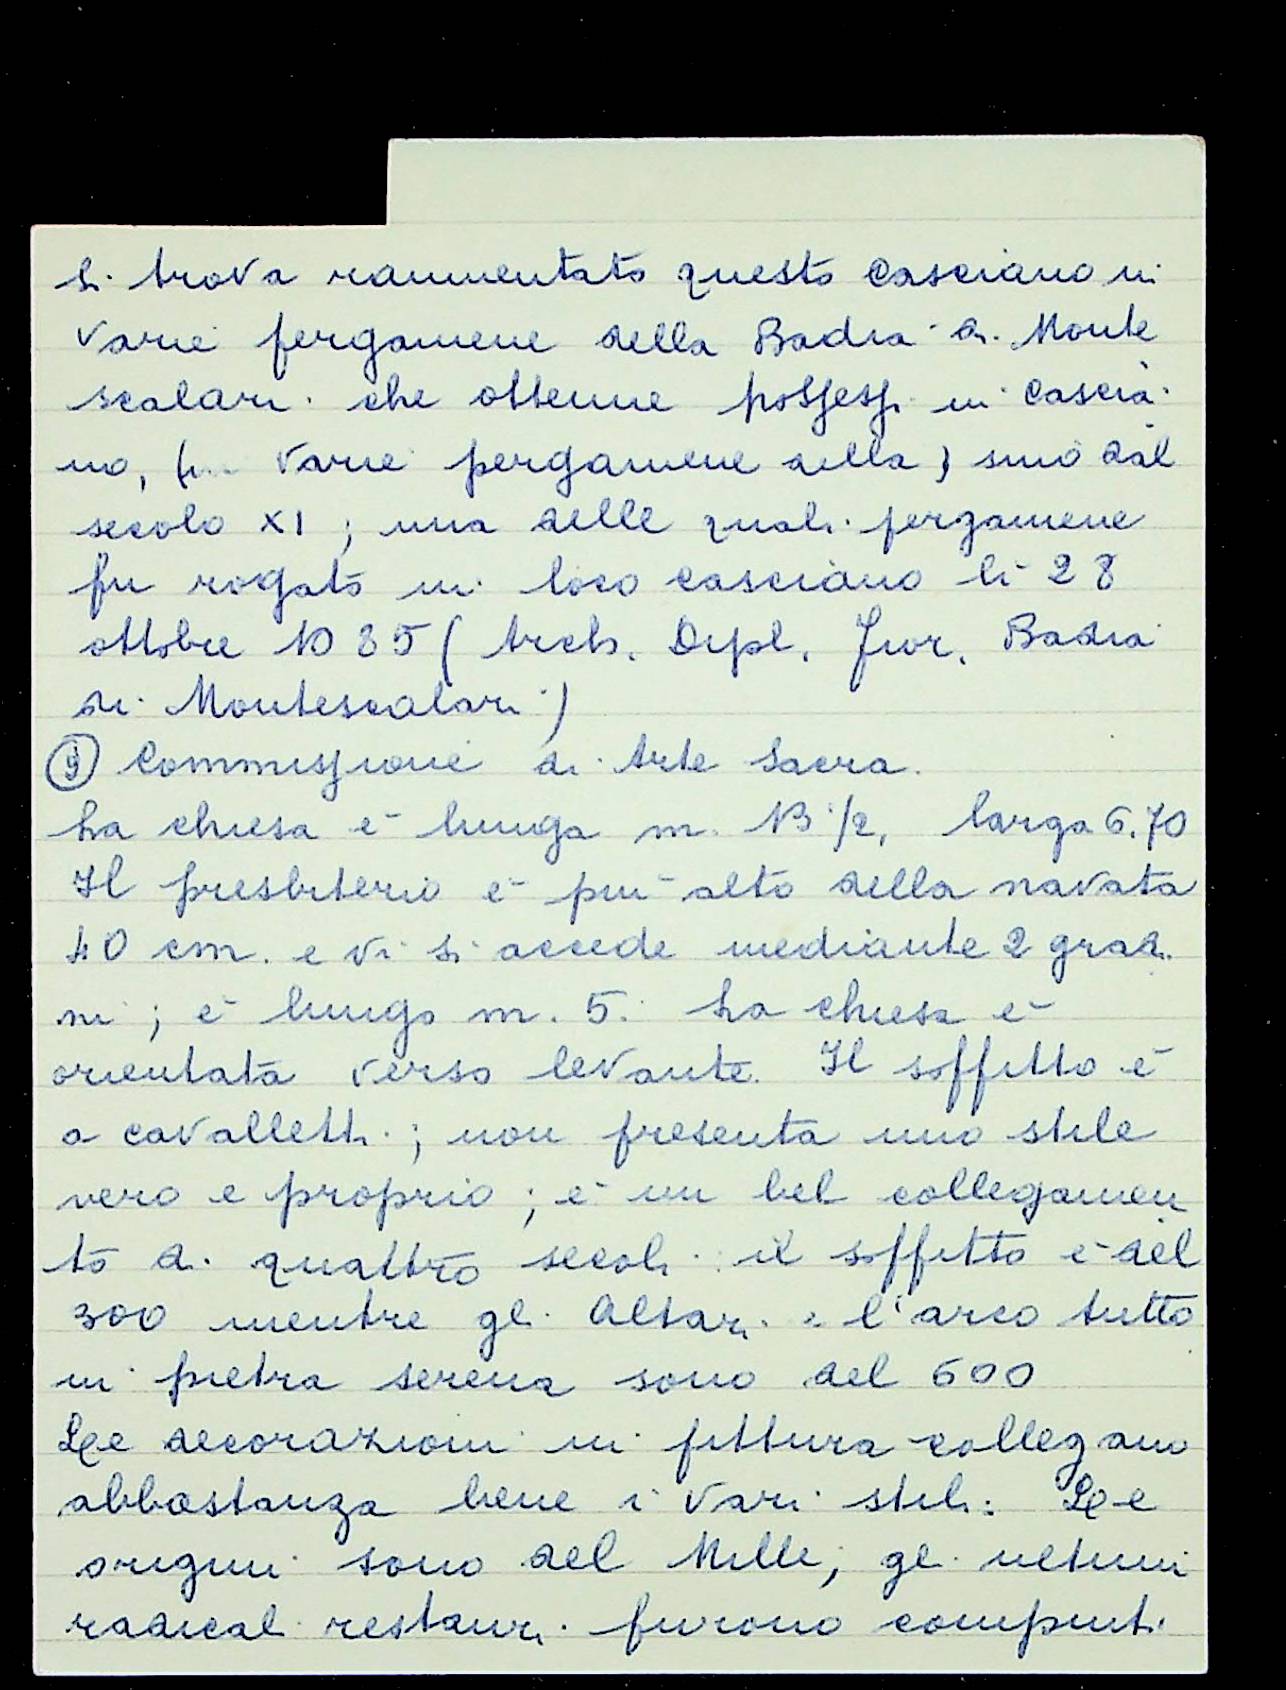 si trova rammentato questo Casciano in
varie pergamene della Badia di Monte
scalari che ottenne possessi in Cascia
no, (in varie pergamene della) sino dal
secolo XI ; una delle quali pergamene
fu rogato in loco Casciano li 28
ottobre 1085 ( Arch. Dipl. Fior. Badia
di Montescalari )
⑨ Commissione di Arte Sacra.
La chiesa è lunga m. 13 1/2, larga 6.70
Il presbiterio è più alto della navata
40 cm. e vi si accede mediante 2 gradi
ni ; è lungo m. 5. La chiesa è
orientata verso levante. Il soffitto è
a cavalletti ; non presenta uno stile
vero e proprio ; è un bel collegamen
to di quattro secoli : il soffitto è del
300 mentre gli Altari e l'arco tutto
in pietra serena sono del 600
Le decorazioni in pittura collegano
abbastanza bene i vari stili. Le
origini sono del Mille, gli ultimi
radicali restauri furono compiuti